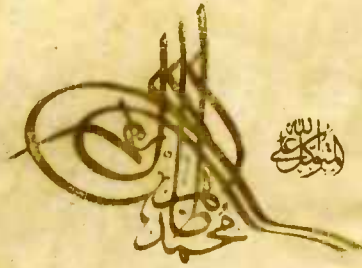 المتوكل على الله
محمد طاهر